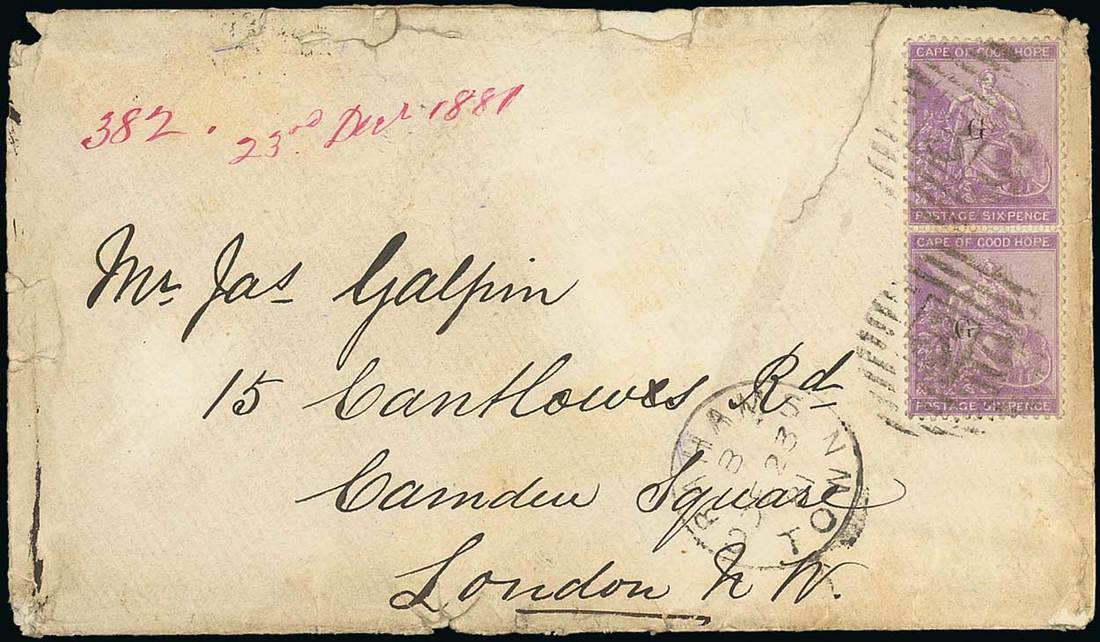 382. 23rd Decr 1881
CAPE OF GOOD HOPE
G
POSTAGE SIX-PENCE
CAPE OF GOOD HOPE
G
POSTAGE SIX-PENCE
Mr. Jas Galpin
15 Cantlowes Rd
Camden Square
London N W.
TOWN